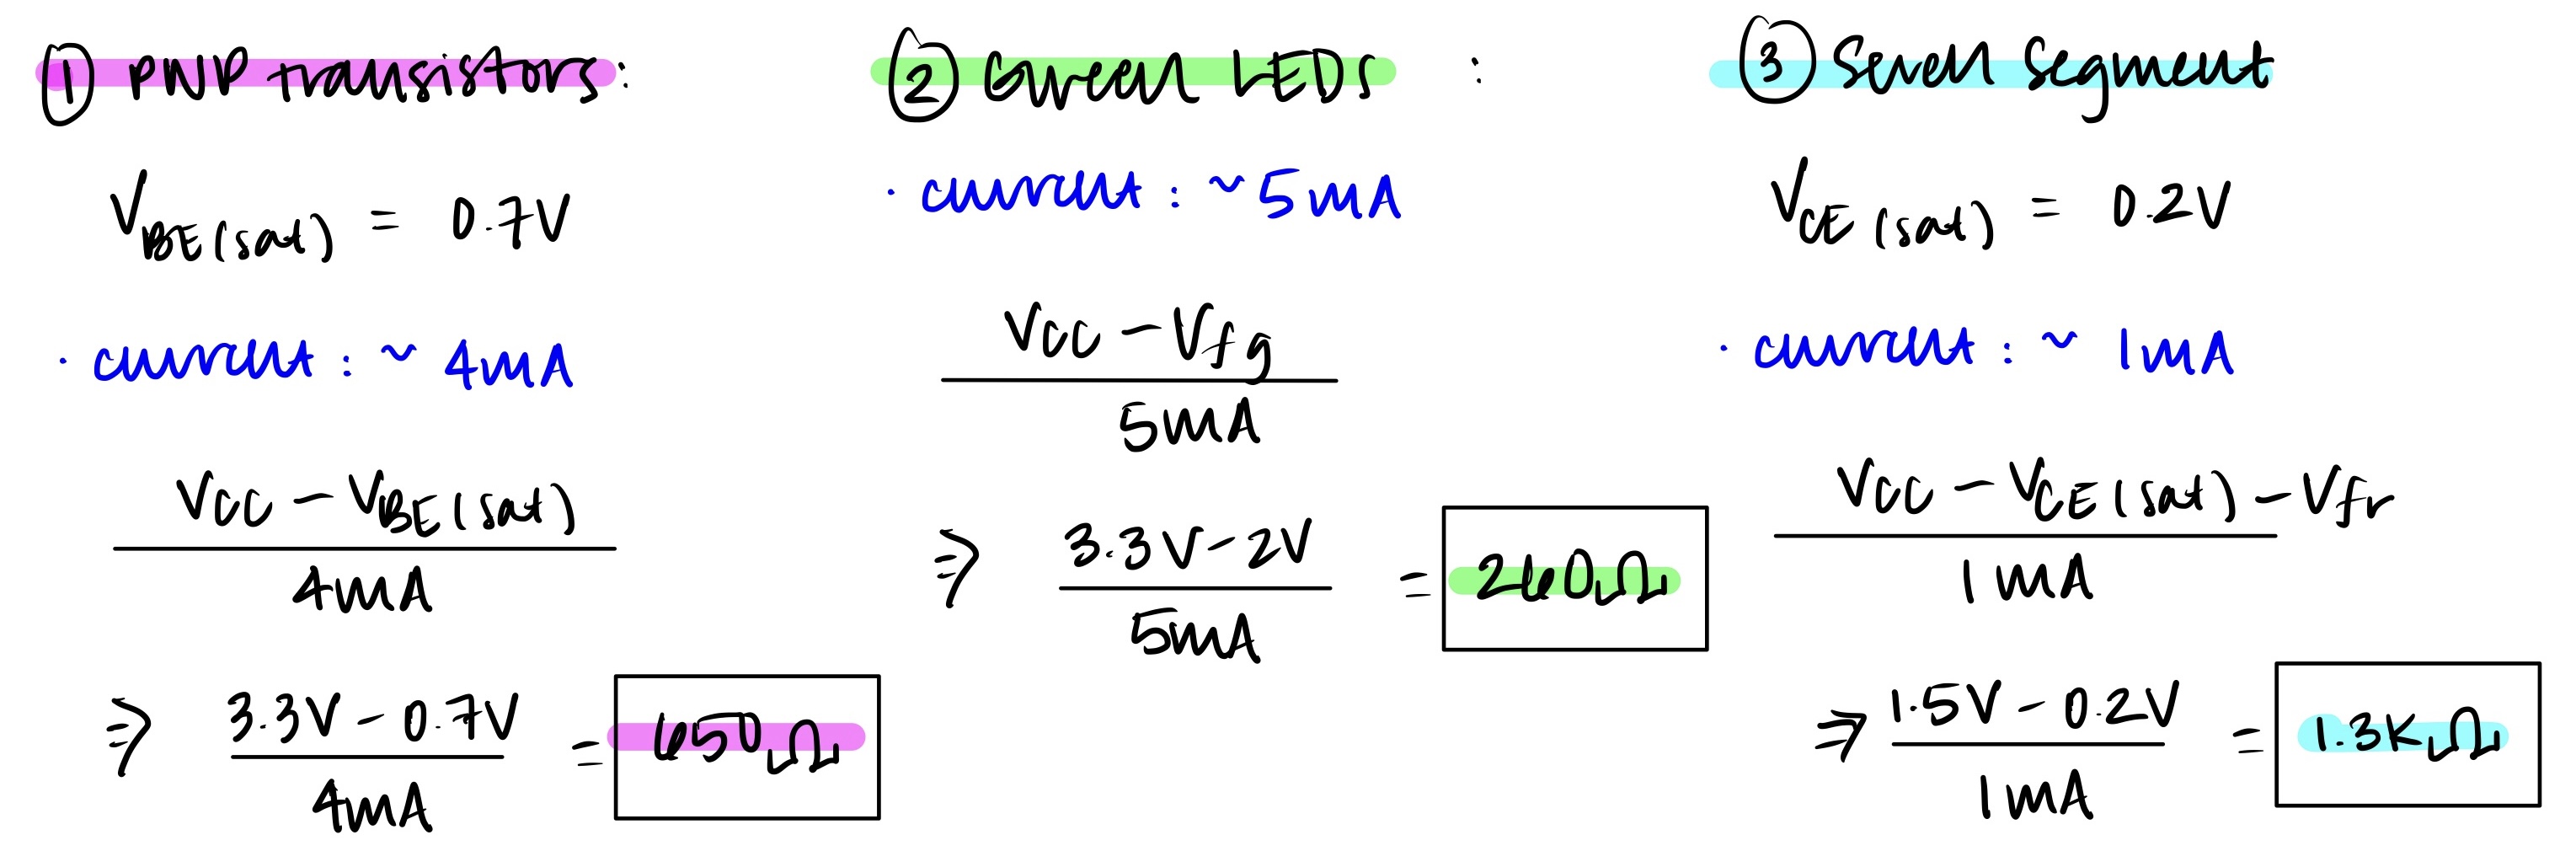 ① PNP transistors:
V_BE(sat) = 0.7V
· current: ~ 4mA
VCC - V_BE(sat)
4mA
⇒ 3.3V - 0.7V = 650Ω
4mA
② Green LEDs :
· current: ~5mA
VCC - Vfg
5mA
⇒ 3.3V - 2V = 260Ω
5mA
③ Seven Segment
V_CE(sat) = 0.2V
· current: ~ 1mA
VCC - V_CE(sat) - Vfr
1mA
⇒ 1.5V - 0.2V = 1.3KΩ
1mA